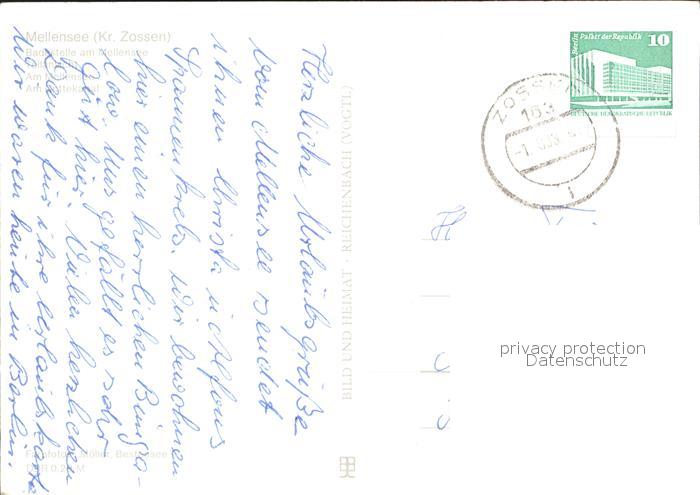 Mellensee (Kr. Zossen)
Badestelle am Mellensee
Am Mellensee
Herzliche Urlaubsgrüße
vom Mellensee sendet
ihnen Christa u. Alfons
Spannenkrebs. Wir bewohnen
hier einen herrlichen Bunga-
low. Uns gefällt es sehr
gut hier. Vielen herzlichen
Dank für ihre Urlaubskarte.
Wir waren heute in Berlin.
BILD UND HEIMAT · REICHENBACH (VOGTL)
Berlin Palast der Republik
10
DEUTSCHE DEMOKRATISCHE REPUBLIK
ZOSSEN
163
privacy protection
Datenschutz